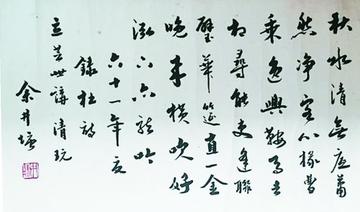 秋水清無底蕭
然净客心掾曹
乘逸興鞍馬去
相尋能吏逢聯
璧華筵直一金
晚來横吹好
泓下亦龍吟
六十一年夏
錄杜詩
立芸世講清玩
余井塘